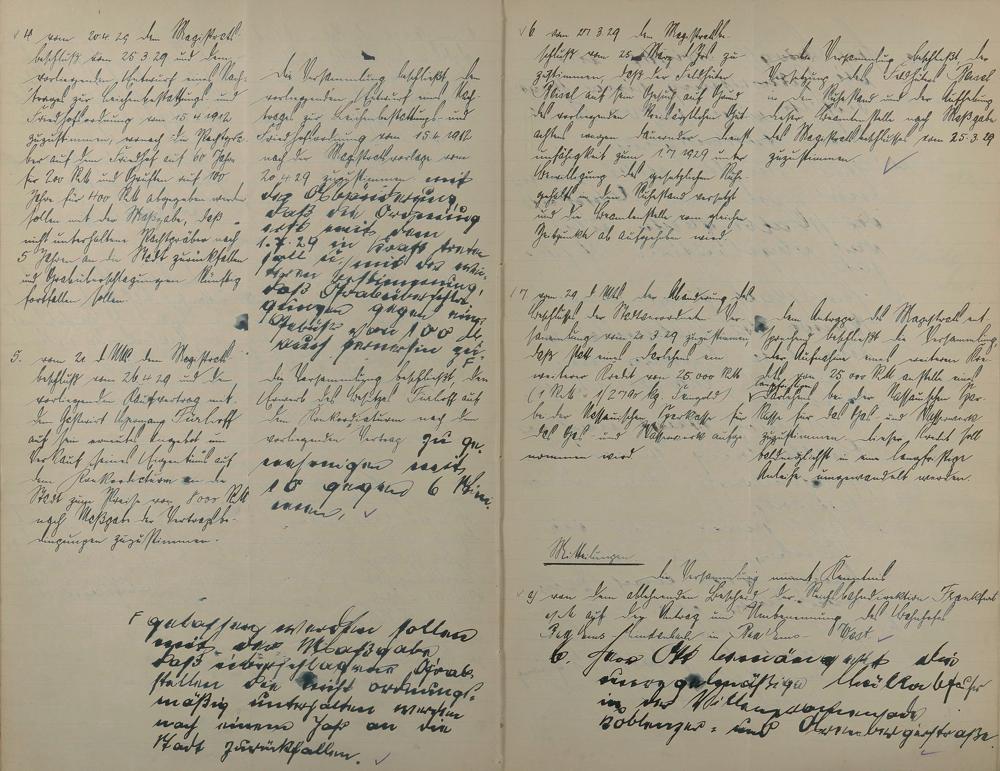 4. vom 20.4.29 dem Magistrats-
beschluß vom 25.3.29 und dem
vorliegenden Entwurf eines Nach-
trages zur Leichenbestattungs und
Friedhofordnung vom 15.4.1912
zuzustimmen, wonach die Nachtgrä-
ber auf dem Friedhof auf 60 Jahre
für 200 RM und Grüften auf 100
Jahre für 400 RM abgegeben werden
sollen mit der Maßgabe, daß
nicht unterhaltene Pachtgräber nach
5 Jahren an die Stadt zurückfallen
und Grabüberschlagungen künftig
fortfallen sollen.
Die Versammlung beschließt, dem
vorliegenden Entwurf eines Nach-
trages zur Leichenbestattungs und
Friedhofordnung vom 15.4.1912
nach der Magistratsvorlage vom
20.4.29 zuzustimmen mit
der Abänderung
daß die Ordnung
erst mit dem
1.7.29 in Kraft treten
soll u. mit der wei-
teren Bestimmung,
daß Grabüberschla-
gungen gegen eine
Gebühr von 100 M
auch fernerhin zu-
F
5. vom 20. d. Mts. dem Magistrats-
beschluß vom 26.4.29 und dem
vorliegenden Kaufvertrag mit
dem Gastwirt Hermann Furloff
auf sein erneutes Angebot im
Verkauf seines Eigentums auf
dem Konkordiaturm an die
Stadt zum Preise von 8000 RM
nach Maßgabe der Vertragsbe-
dingungen zuzustimmen.
Die Versammlung beschließt, den
Erwerb des Besitzes Furloff auf
dem Konkordiaturm nach dem
vorliegenden Vertrag zu ge-
nehmigen mit
16 gegen 6 Stim-
men.
F gelassen werden sollen
mit der Maßgabe
daß überschlagene Grab-
stellen die nicht ordnungs-
mäßig unterhalten werden
nach einem Jahr an die
Stadt zurückfallen.
6 vom 27.3.29 dem Magistratsbe-
schluß vom 25. März Js. zu-
zustimmen, daß der Feldhüter
Kasel auf sein Gesuch auf Grund
des vorliegenden Gut-
achtens wegen dauernder Dienst-
unfähigkeit zum 1.7.1929 unter
Bewilligung des gesetzlichen Ruhe-
gehalts in den Ruhestand versetzt
und die Beamtenstelle vom gleichen
Zeitpunkte ab aufgehoben wird.
Die Versammlung beschließt, der
Versetzung des Feldhüters Kasel
in den Ruhestand und der Aufhebung
dieser Beamtenstelle nach Maßgabe
des Magistratsbeschlusses vom 25.3.29
zuzustimmen.
7 vom 29. d. Mts. der Abänderung des
Beschlusses der Stadtverordneten Ver-
sammlung vom 2.3.29 zuzustimmen,
daß statt eines Darlehens ein
weiterer Kredit von 25.000 RM
(1 RM = 1/2790 kg. Feingold)
bei der Nassauischen Sparkasse für
das Gas und Wasserwerk aufge-
nommen wird.
Dem Antrage des Magistrats ent-
sprechend beschließt die Versammlung,
der Aufnahme eines weiteren Kre-
dits von 25000 RM anstelle eines
langfristigen
Darlehens bei der Nassauischen Spar-
kasse für das Gas und Wasserwerk
zuzustimmen. Dieser Kredit soll
baldmöglichst in eine langfristige
Anleihe umgewandelt werden.
Mitteilungen
Die Versammlung nimmt Kenntnis
a) von dem ablehnenden Bescheid der Reichsbahndirektion Frankfurt
auf den Antrag und Umbenennung des Bahnhofes
Bad Ems in Bad Ems-West.
b. Herr Ott bemängelt die
unregelmäßige Müllabfuhr
in der
Koblenzer- und Arenbergerstraße.